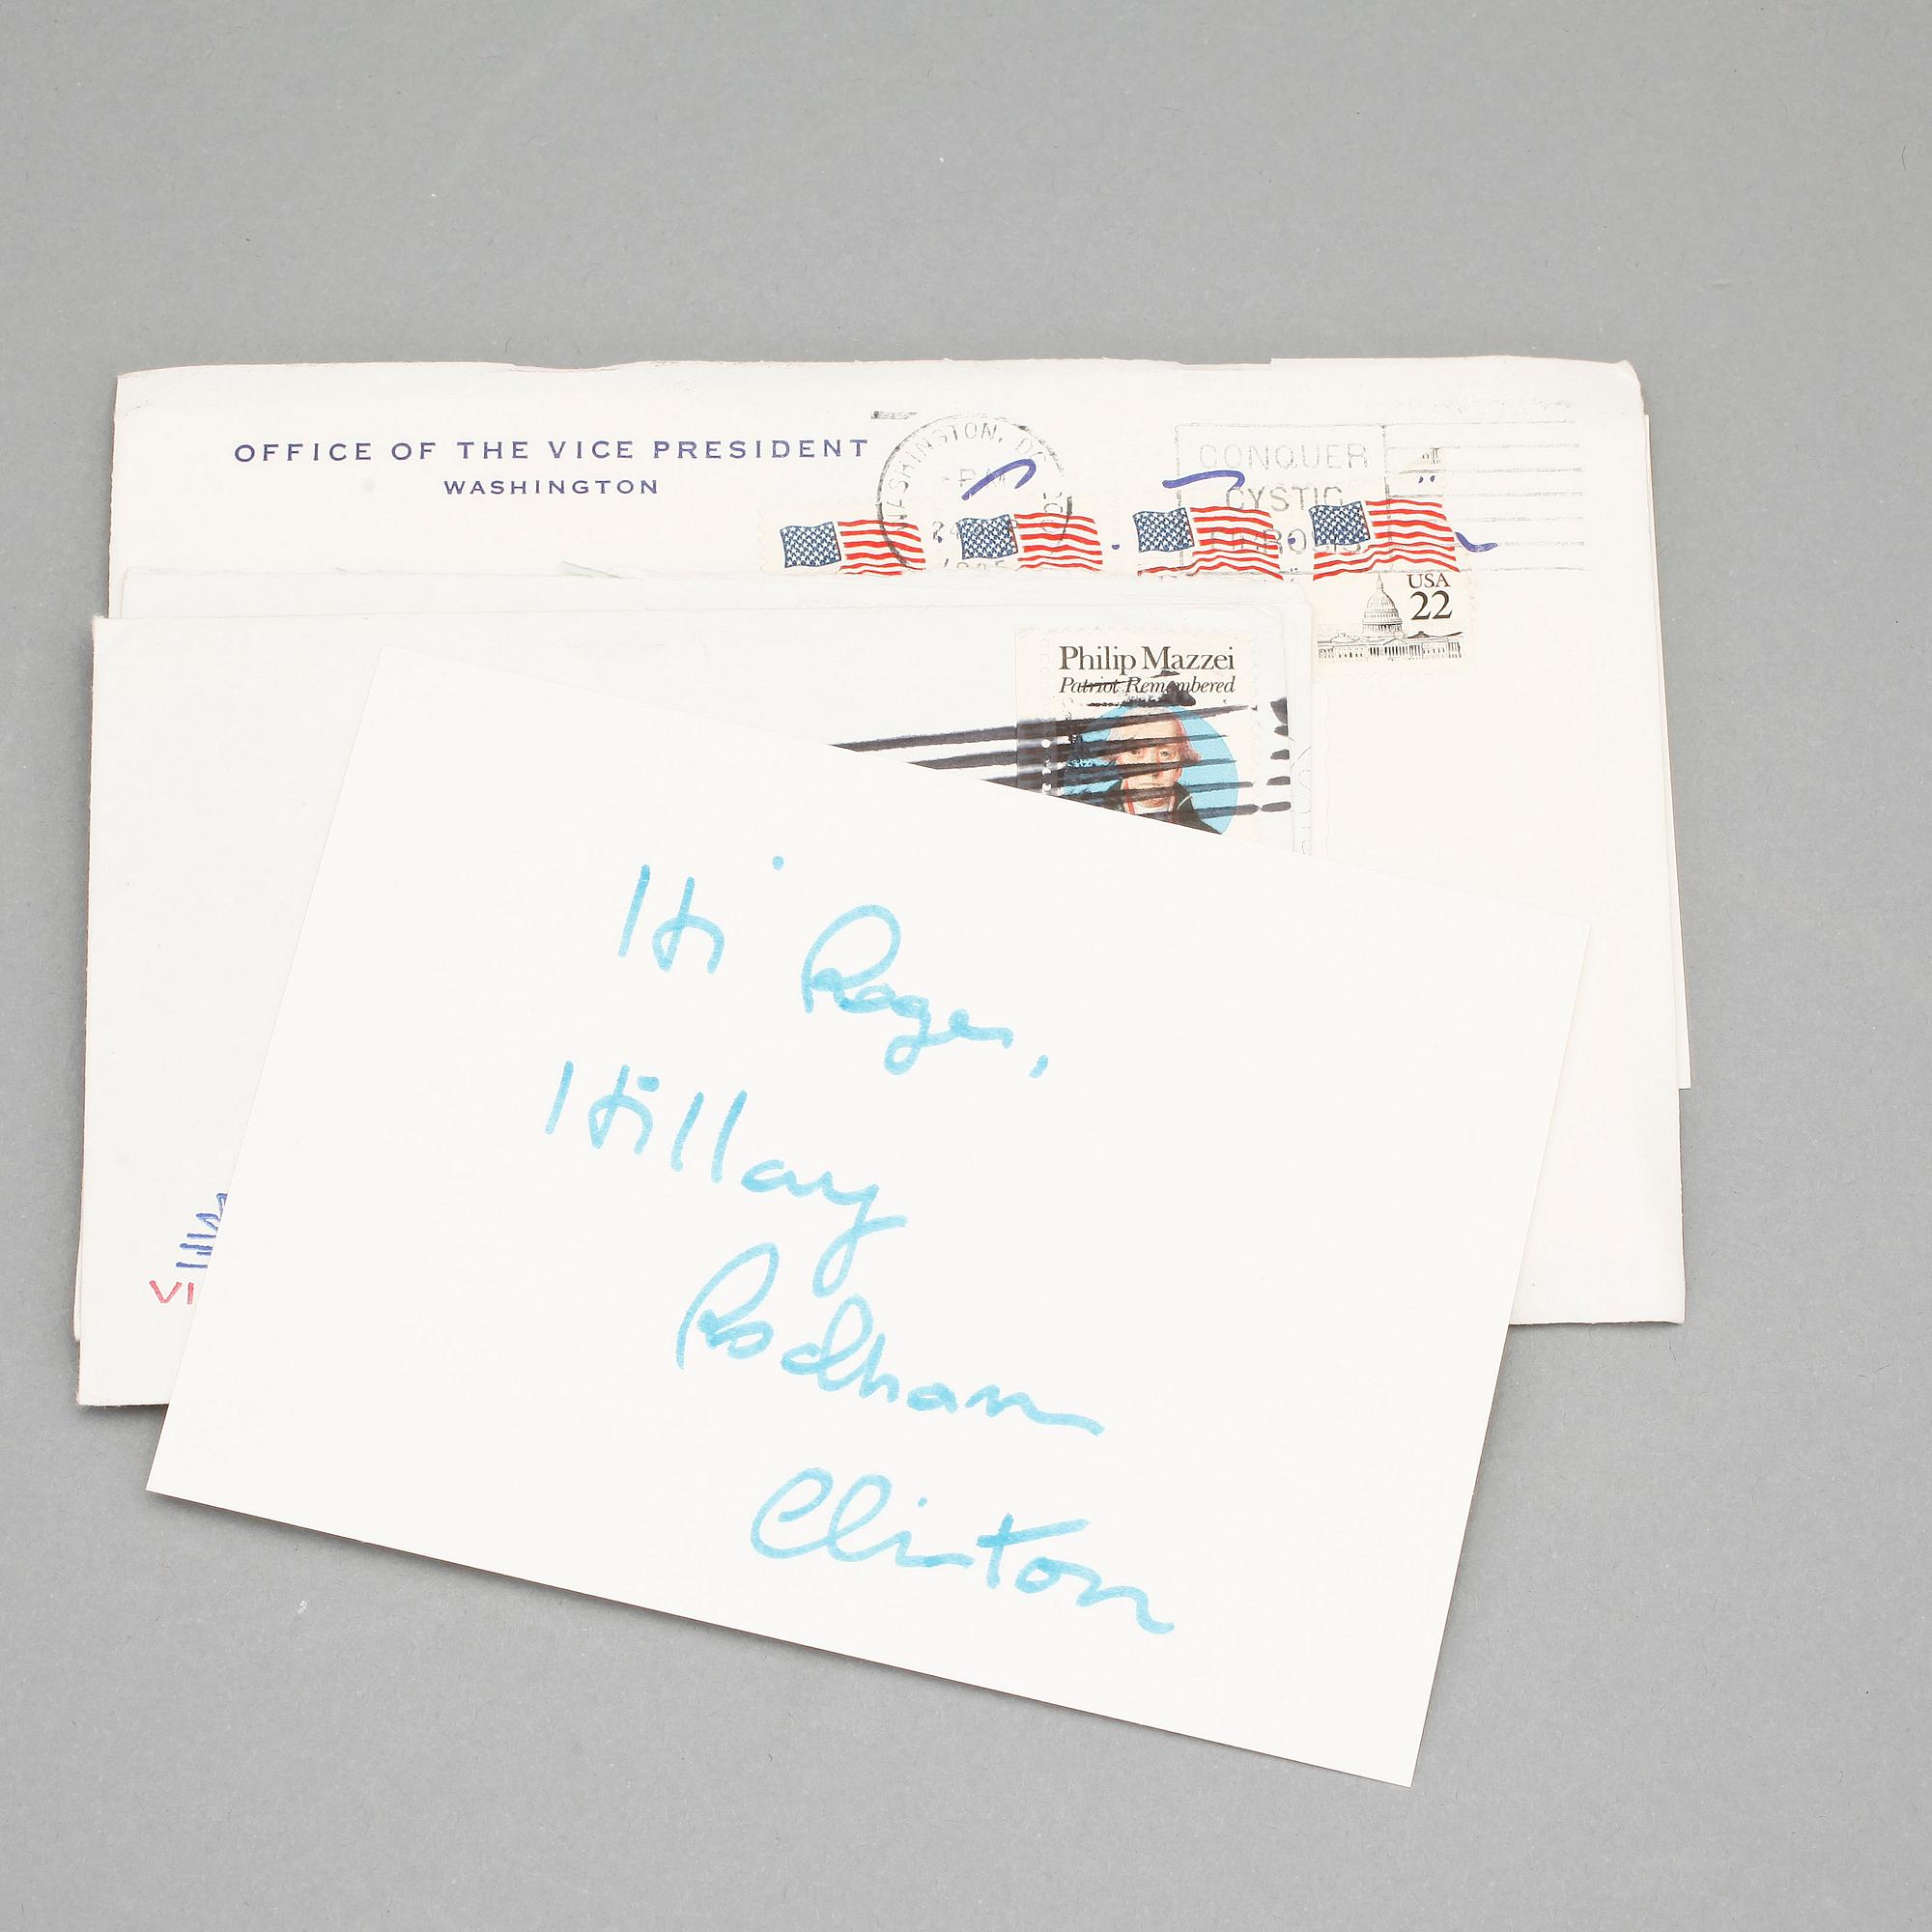 OFFICE OF THE VICE PRESIDENT
WASHINGTON
WASHINGTON, DC
PM
CONQUER
CYSTIC
USA
22
Philip Mazzei
Patriot Remembered
Hi Roger,
Hillary
Rodham
Clinton
VI